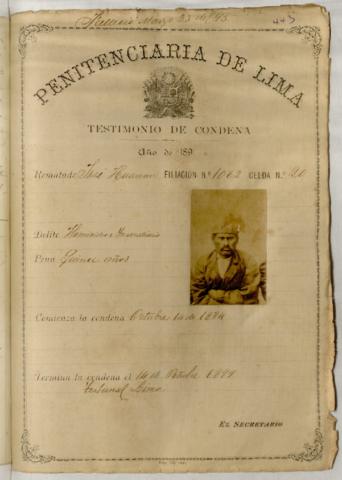 Marzo 23
443
PENITENCIARIA DE LIMA
TESTIMONIO DE CONDENA
Año de 189
Rematado José Huaman FILIACION N.º 1062 CELDA N.º
Delito Homicidio e
Pena Quince años
Comienza la condena Octubre 14 de 1884
Termina la condena el 14 de Octubre 1899
Tribunal
EL SECRETARIO